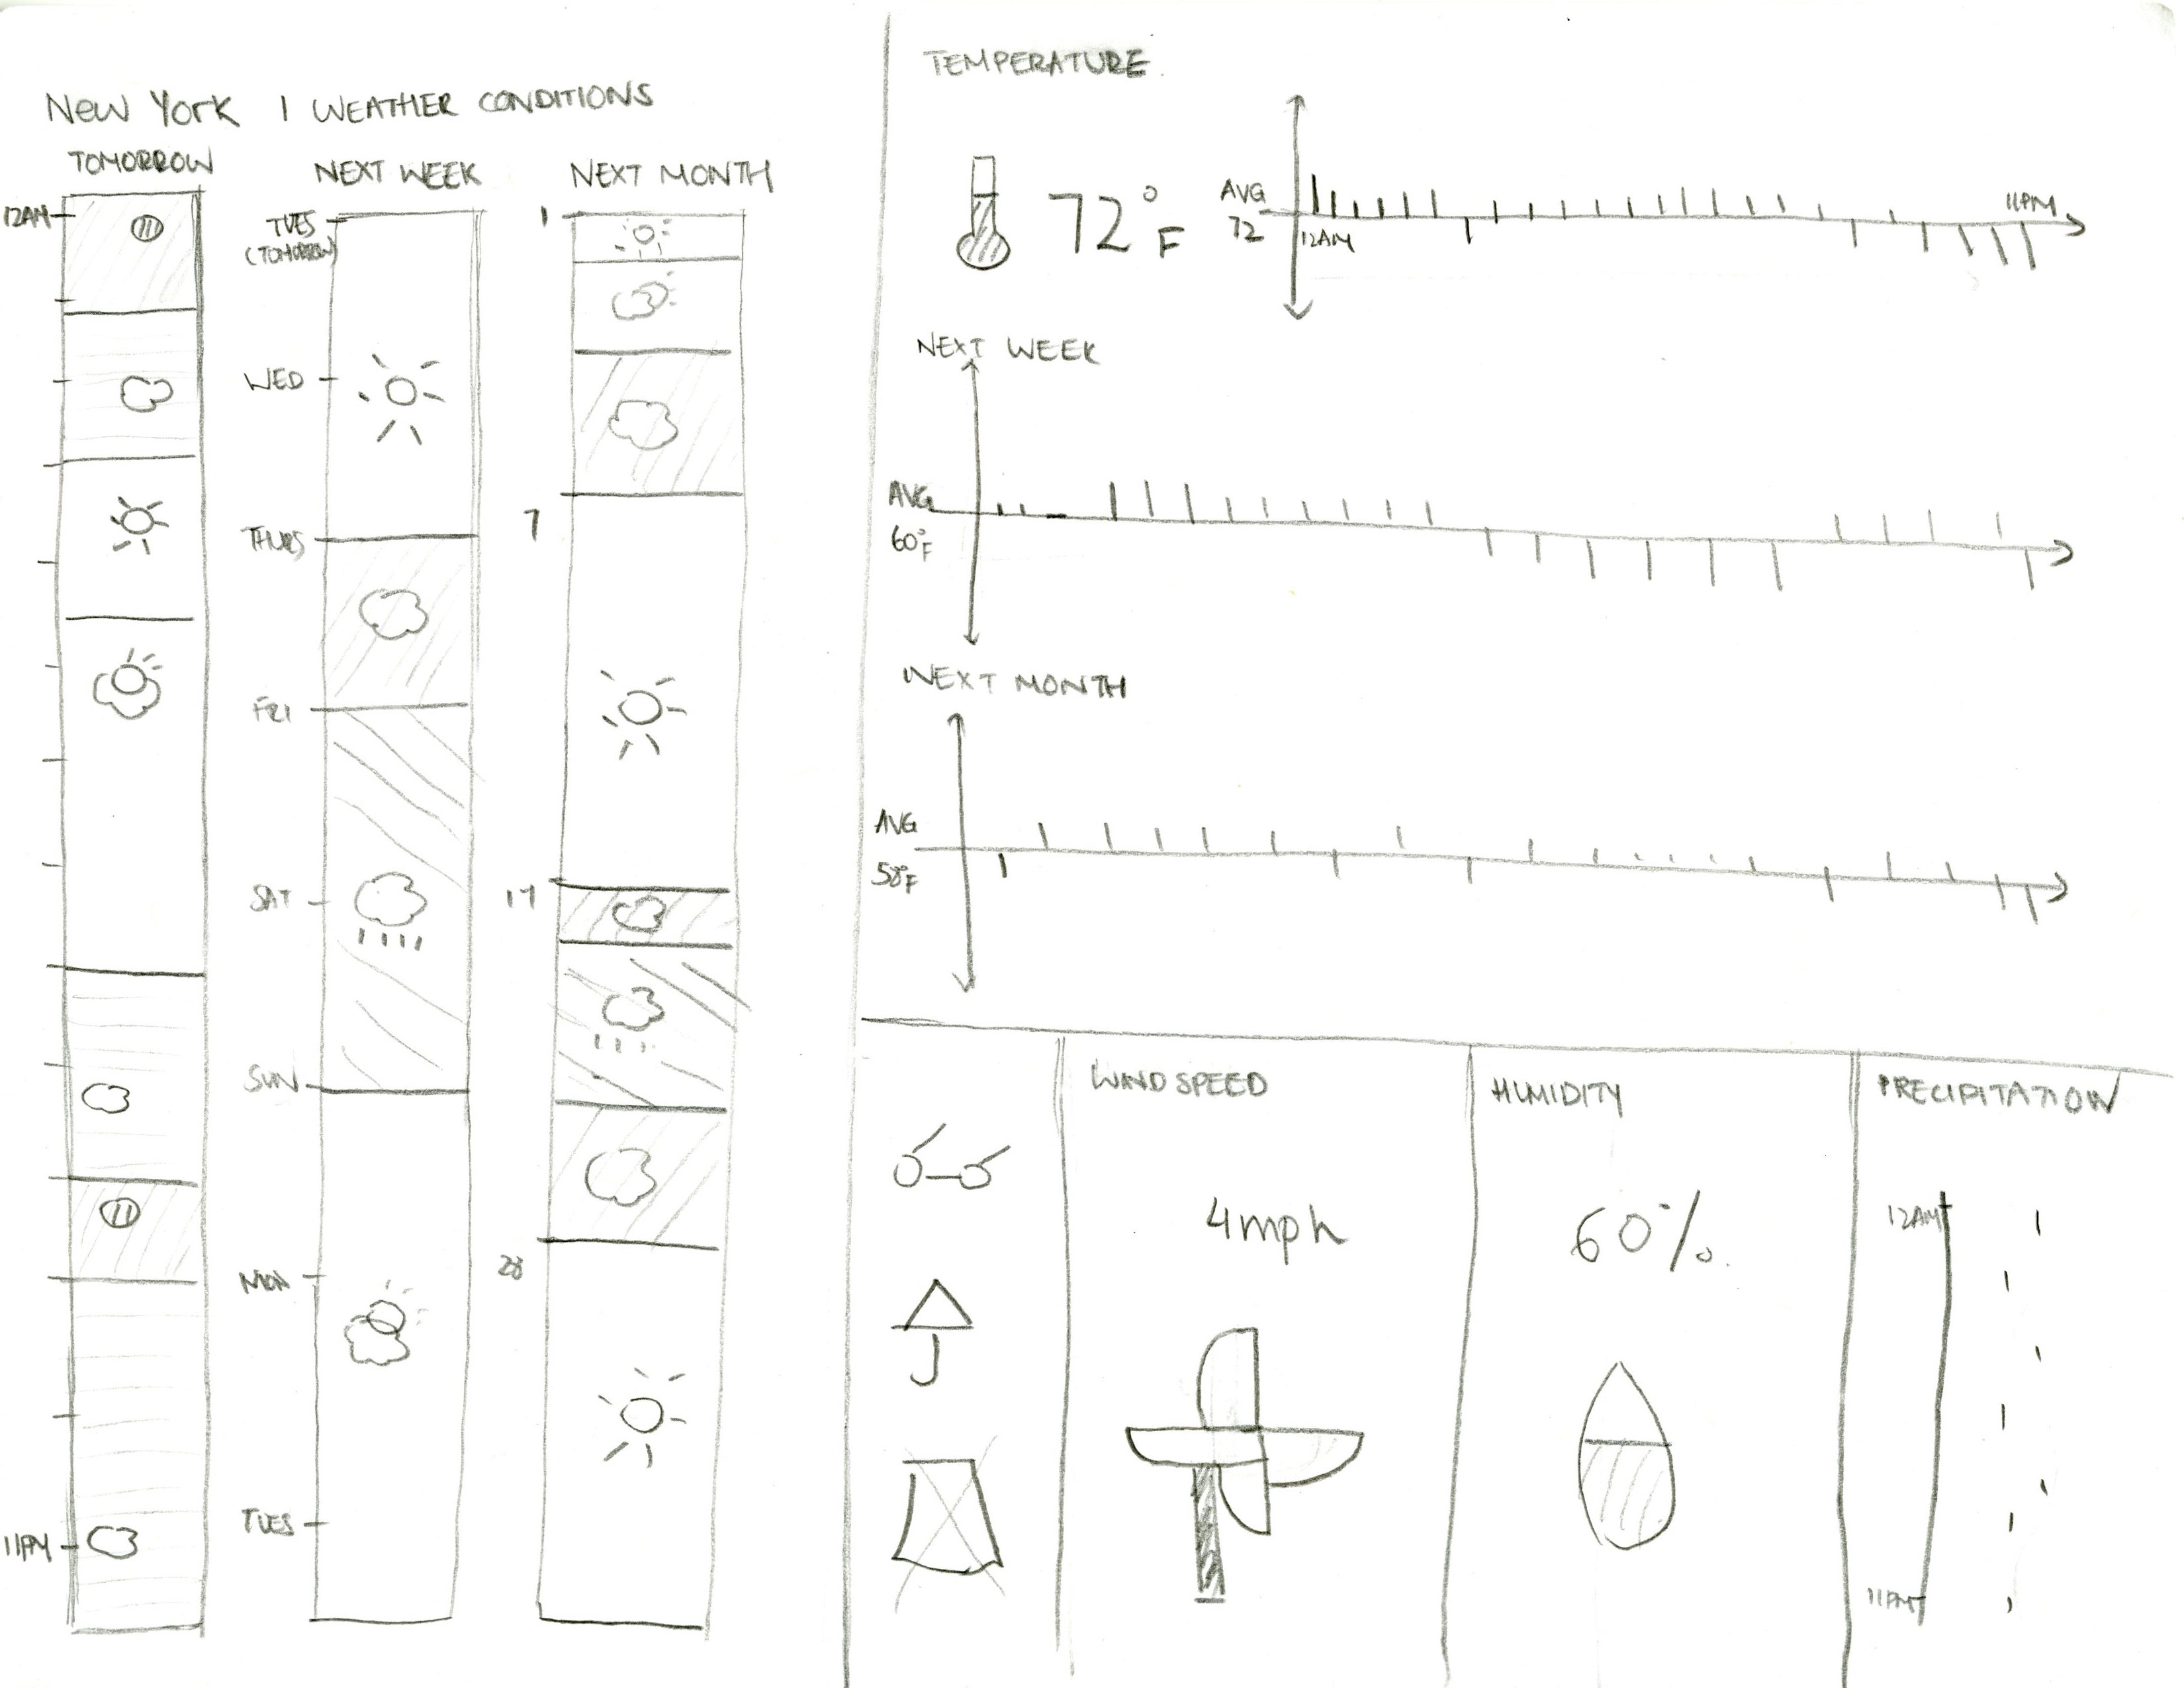 New York | WEATHER CONDITIONS
TOMORROW
12AM
11PM
NEXT WEEK
TUES
(TOMORROW)
WED
THURS
FRI
SAT
SUN
MON
TUES
NEXT MONTH
1
7
17
28
TEMPERATURE
72°F
AVG
72
12AM
11PM
NEXT WEEK
AVG
60°F
NEXT MONTH
AVG
58°F
WINDSPEED
4mph
HUMIDITY
60%
PRECIPITATION
12AM
11PM